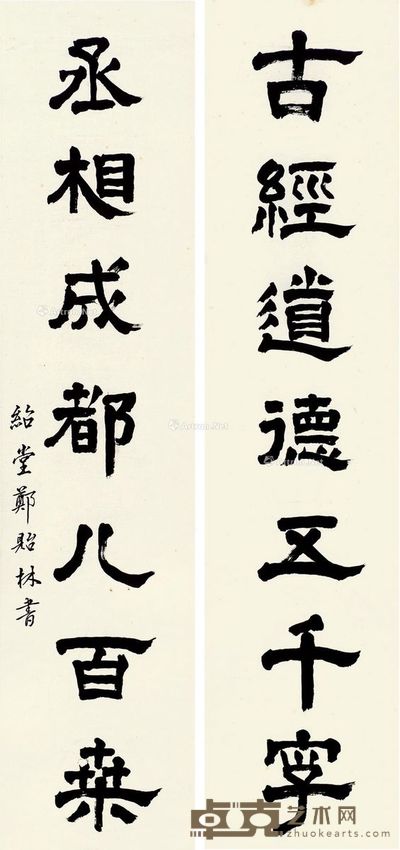 古經道德五千字
丞相成都八百桒
紹堂鄭貽林書
Artron.Net
卓克艺术网
zhuokearts.com